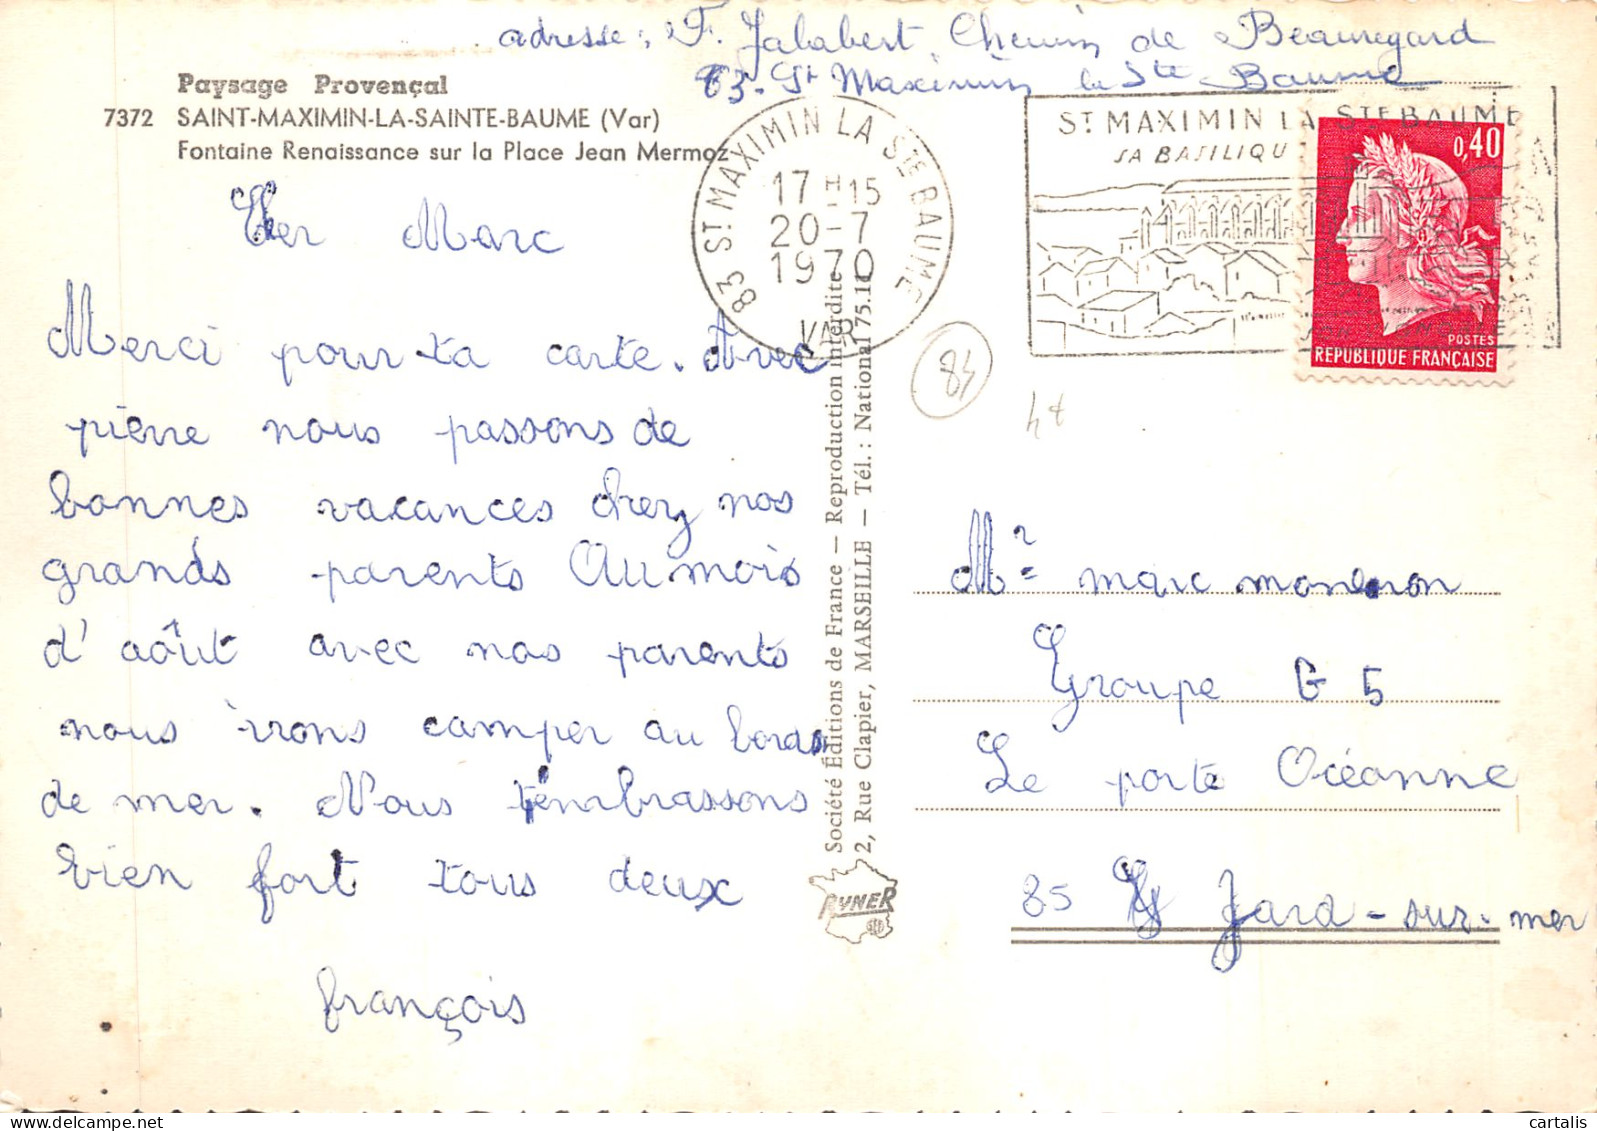 adresse : F. Jalabert Chemin de Beauregard
83 - St Maximin la Ste Baume
Paysage Provençal
7372 SAINT-MAXIMIN-LA-SAINTE-BAUME (Var)
Fontaine Renaissance sur la Place Jean Mermoz
83 ST MAXIMIN LA STE BAUME
17 H 15
20-7
1970
VAR
ST MAXIMIN LA STE BAUME
SA BASILIQU
0,40
POSTES
REPUBLIQUE FRANÇAISE
83
Cher Marc
Merci pour ta carte. Avec
pierre nous passons de
bonnes vacances chez nos
grands parents Au mois
d'août avec nos parents
nous irons camper au bords
de mer. Nous t'embrassons
bien fort tous deux
françois
Société Éditions de France — Reproduction interdite
2, Rue Clapier, MARSEILLE — Tél. : National 75.10
RYNER
Mr marc
Groupe G 5
Le porte Océanne
85 Jard-sur-mer
cartalis